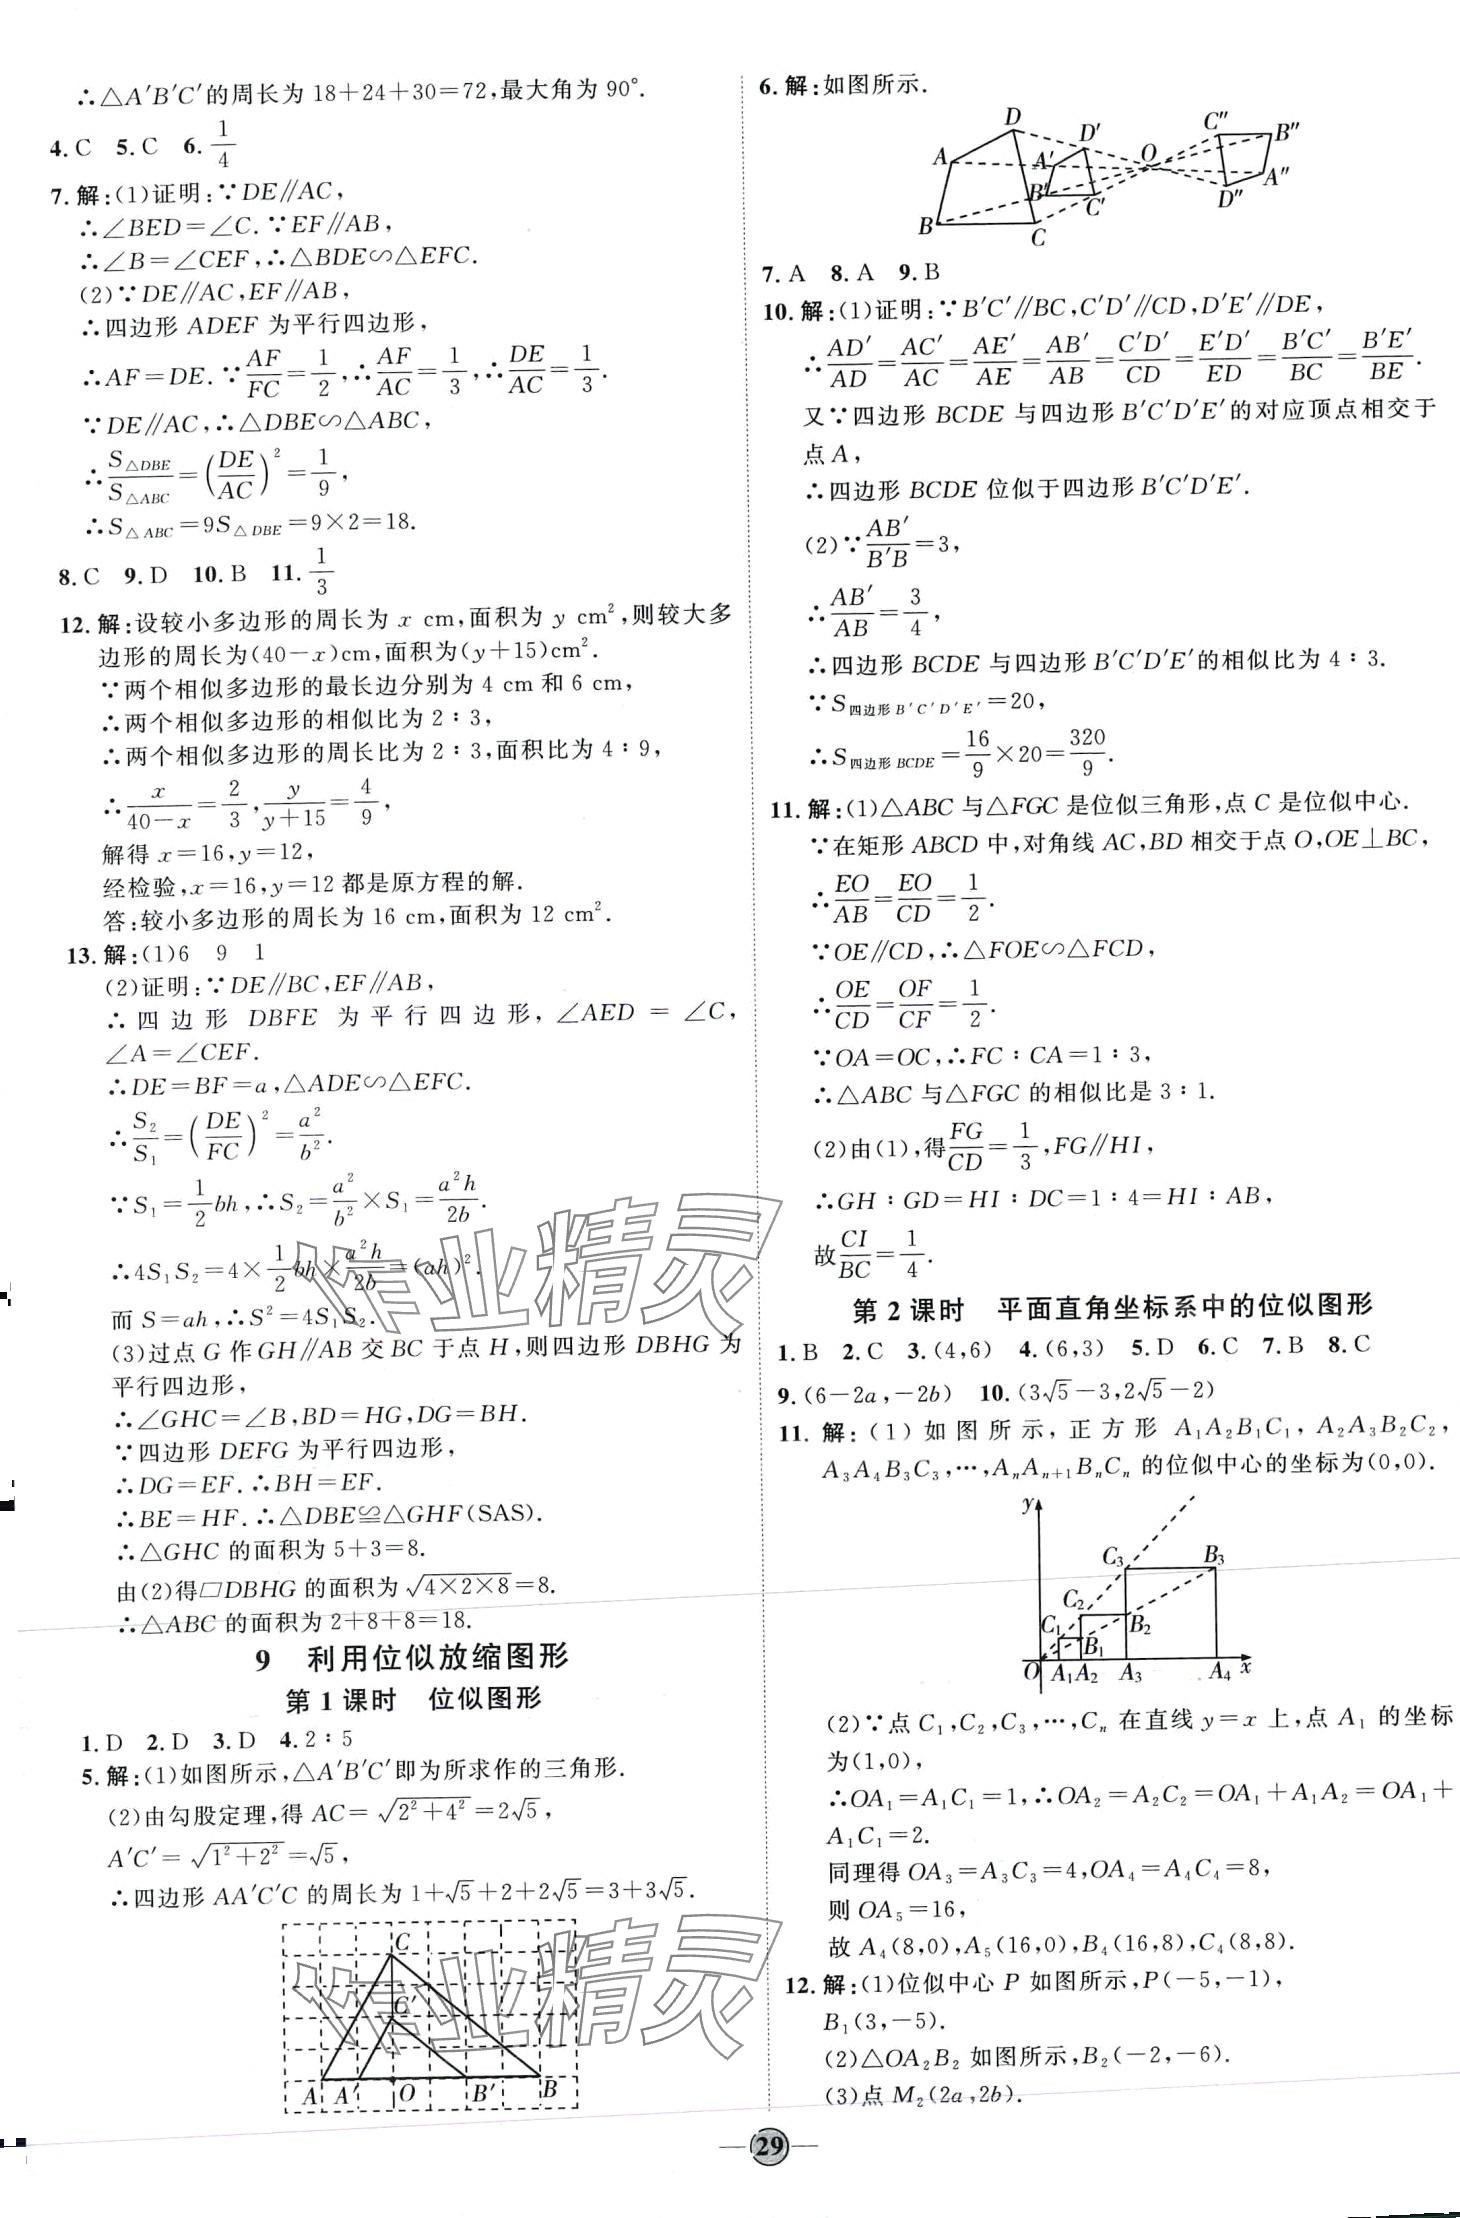 ∴△A′B′C′的周长为 18+24+30=72,最大角为 90°.
4. C  5. C  6. 1/4
7. 解:(1)证明:∵DE∥AC,
∴∠BED=∠C. ∵EF∥AB,
∴∠B=∠CEF,∴△BDE∽△EFC.
(2)∵DE∥AC,EF∥AB,
∴四边形 ADEF 为平行四边形,
∴AF=DE. ∵AF/FC=1/2,∴AF/AC=1/3,∴DE/AC=1/3.
∵DE∥AC,∴△DBE∽△ABC,
∴S△DBE/S△ABC=(DE/AC)²=1/9,
∴S△ABC=9S△DBE=9×2=18.
8. C  9. D  10. B  11. 1/3
12. 解:设较小多边形的周长为 x cm,面积为 y cm²,则较大多
边形的周长为(40-x)cm,面积为(y+15)cm².
∵两个相似多边形的最长边分别为 4 cm 和 6 cm,
∴两个相似多边形的相似比为 2∶3,
∴两个相似多边形的周长比为 2∶3,面积比为 4∶9,
∴x/(40-x)=2/3,y/(y+15)=4/9,
解得 x=16,y=12,
经检验,x=16,y=12 都是原方程的解.
答:较小多边形的周长为 16 cm,面积为 12 cm².
13. 解:(1)6  9  1
(2)证明:∵DE∥BC,EF∥AB,
∴四边形 DBFE 为平行四边形,∠AED=∠C,
∠A=∠CEF.
∴DE=BF=a,△ADE∽△EFC.
∴S₂/S₁=(DE/FC)²=a²/b².
∵S₁=1/2bh,∴S₂=a²/b²×S₁=a²h/2b.
∴4S₁S₂=4×1/2bh×a²h/2b=(ah)².
而 S=ah,∴S²=4S₁S₂.
(3)过点 G 作 GH∥AB 交 BC 于点 H,则四边形 DBHG 为
平行四边形,
∴∠GHC=∠B,BD=HG,DG=BH.
∵四边形 DEFG 为平行四边形,
∴DG=EF. ∴BH=EF.
∴BE=HF. ∴△DBE≌△GHF(SAS).
∴△GHC 的面积为 5+3=8.
由(2)得□DBHG 的面积为 √(4×2×8)=8.
∴△ABC 的面积为 2+8+8=18.
9 利用位似放缩图形
第 1 课时 位似图形
1. D  2. D  3. D  4. 2∶5
5. 解:(1)如图所示,△A′B′C′即为所求作的三角形.
(2)由勾股定理,得 AC=√(2²+4²)=2√5,
A′C′=√(1²+2²)=√5,
∴四边形 AA′C′C 的周长为 1+√5+2+2√5=3+3√5.
C
C′
A A′ O B′ B
6. 解:如图所示.
D D′ C″ B″
A A′ O A″
B′ C′ D″
B C
7. A  8. A  9. B
10. 解:(1)证明:∵B′C′∥BC,C′D′∥CD,D′E′∥DE,
∴AD′/AD=AC′/AC=AE′/AE=AB′/AB=C′D′/CD=E′D′/ED=B′C′/BC=B′E′/BE.
又∵四边形 BCDE 与四边形 B′C′D′E′的对应顶点相交于
点 A,
∴四边形 BCDE 位似于四边形 B′C′D′E′.
(2)∵AB′/B′B=3,
∴AB′/AB=3/4,
∴四边形 BCDE 与四边形 B′C′D′E′的相似比为 4∶3.
∵S四边形B′C′D′E′=20,
∴S四边形BCDE=16/9×20=320/9.
11. 解:(1)△ABC 与△FGC 是位似三角形,点 C 是位似中心.
∵在矩形 ABCD 中,对角线 AC,BD 相交于点 O,OE⊥BC,
∴EO/AB=EO/CD=1/2.
∵OE∥CD,∴△FOE∽△FCD,
∴OE/CD=OF/CF=1/2.
∵OA=OC,∴FC∶CA=1∶3,
∴△ABC 与△FGC 的相似比是 3∶1.
(2)由(1),得FG/CD=1/3,FG∥HI,
∴GH∶GD=HI∶DC=1∶4=HI∶AB,
故CI/BC=1/4.
第 2 课时 平面直角坐标系中的位似图形
1. B  2. C  3. (4,6)  4. (6,3)  5. D  6. C  7. B  8. C
9. (6-2a,-2b)  10. (3√5-3,2√5-2)
11. 解:(1)如图所示,正方形 A₁A₂B₁C₁,A₂A₃B₂C₂,
A₃A₄B₃C₃,…,AₙAₙ₊₁BₙCₙ 的位似中心的坐标为(0,0).
y
C₃ B₃
C₂
C₁ B₂
B₁
O A₁ A₂ A₃ A₄ x
(2)∵点 C₁,C₂,C₃,…,Cₙ 在直线 y=x 上,点 A₁ 的坐标
为(1,0),
∴OA₁=A₁C₁=1,∴OA₂=A₂C₂=OA₁+A₁A₂=OA₁+
A₁C₁=2.
同理得 OA₃=A₃C₃=4,OA₄=A₄C₄=8,
则 OA₅=16,
故 A₄(8,0),A₅(16,0),B₄(16,8),C₄(8,8).
12. 解:(1)位似中心 P 如图所示,P(-5,-1),
B₁(3,-5).
(2)△OA₂B₂ 如图所示,B₂(-2,-6).
(3)点 M₂(2a,2b).
29
作业精灵
作业精灵